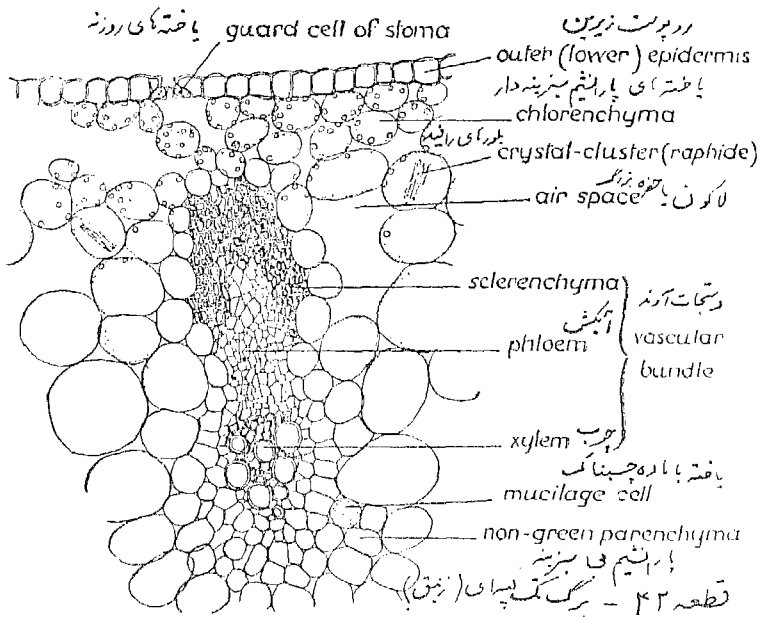 یاخته های روزنه
guard cell of stoma
روپوست زیرین
outer (lower) epidermis
یاخته های پارانشیم سبزینه دار
chlorenchyma
بلورهای رافید
crystal-cluster (raphide)
air space
لاکون یا حفره بزرگ
sclerenchyma
دستجات آوند
آبکش
phloem
vascular
bundle
xylem
چوب
یاخته با ماده چسبناک
mucilage cell
non-green parenchyma
پارانشیم بی سبزینه
قطعه ۴۲ - برگ (زنبق)